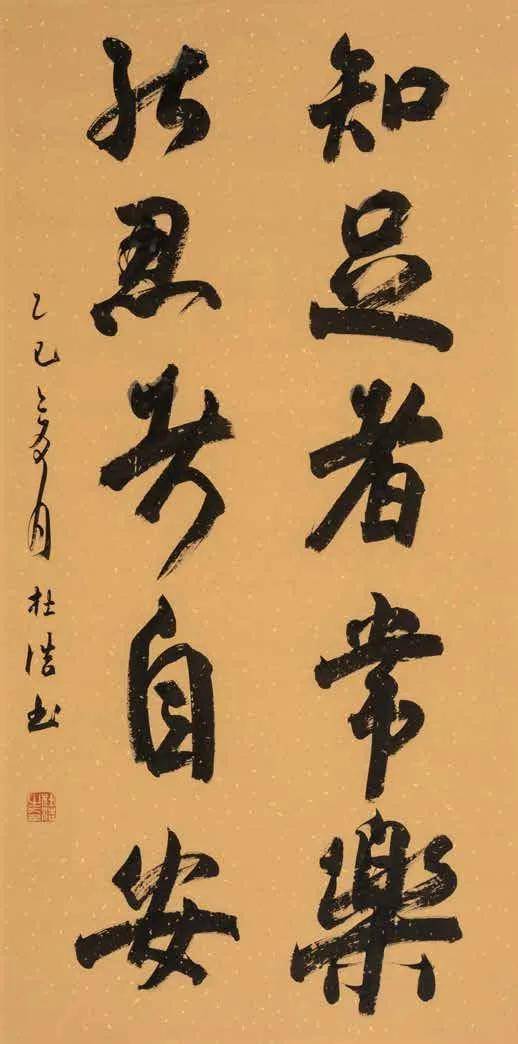 知足者常樂
能忍者自安
乙巳之夏月杜浩书